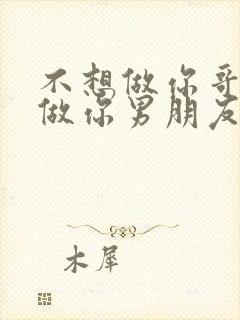 不想做你哥
做你男朋友
木犀